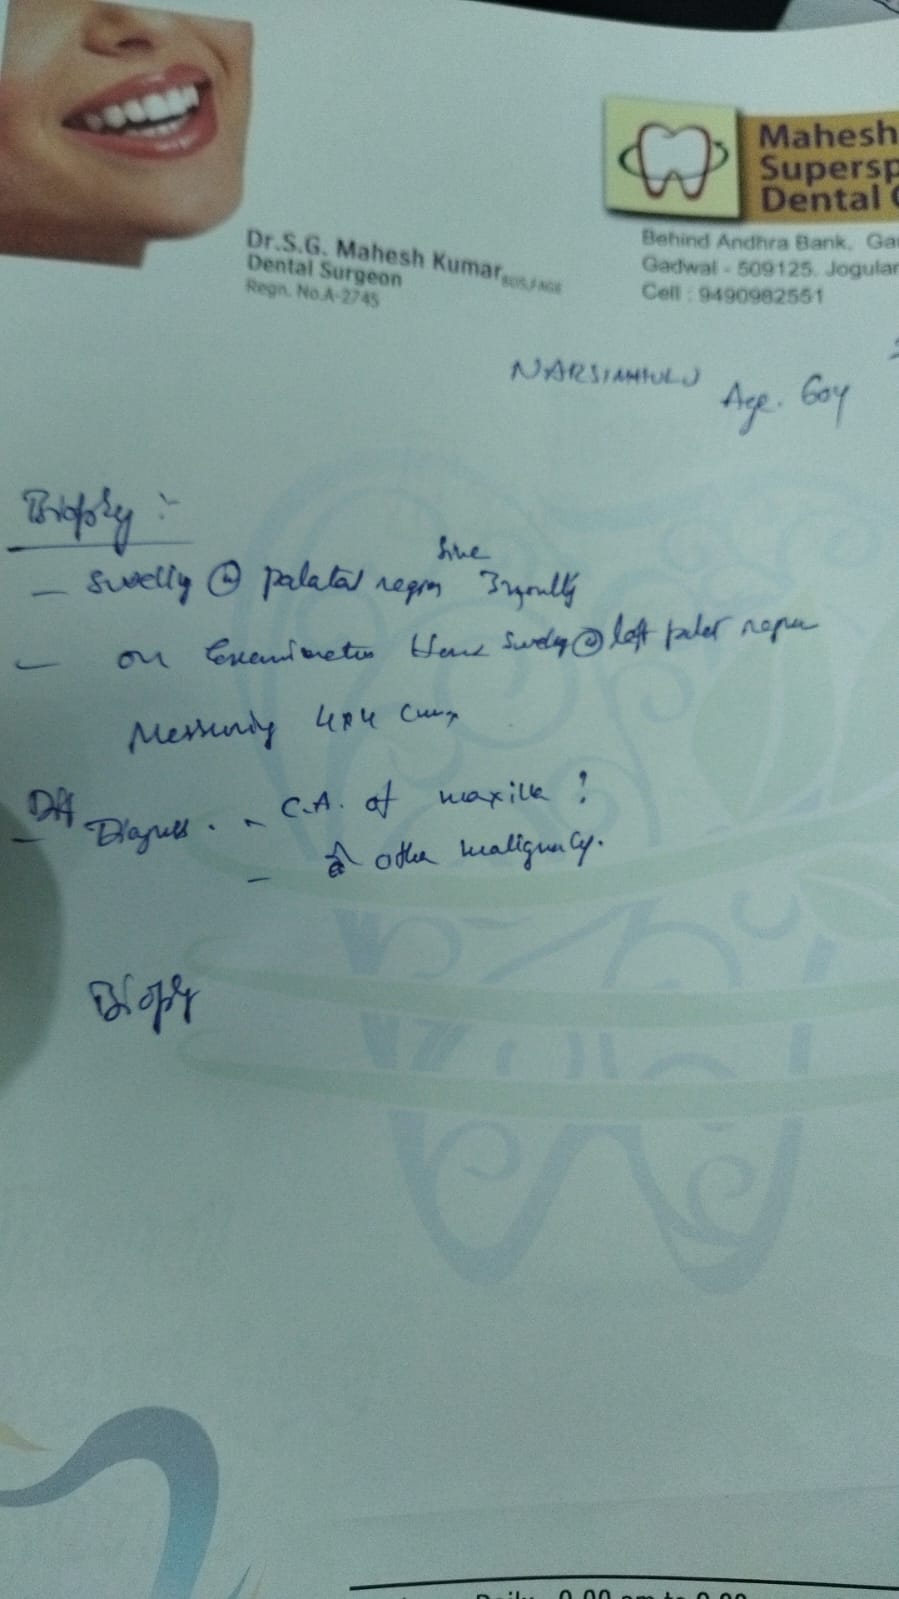 Mahesh
Supersp
Dental C
Dr.S.G. Mahesh Kumar BDS,FAGE
Dental Surgeon
Regn. No.A-2745
Behind Andhra Bank, Ga
Gadwal - 509125. Jogular
Cell : 9490982551
Age. 60y
Biopsy :-
- Swelly @ palatal region
- on Examination swelly @ left region
4x4 cm
Diff
Diagnosis. - C.A. of maxilla ?
- other malignancy.
Biopsy